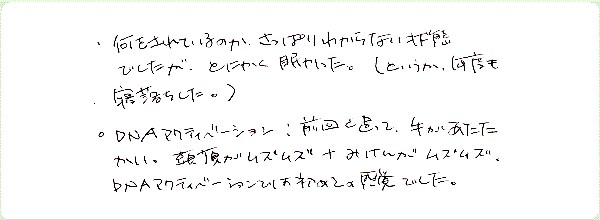 ・何をされているのか、さっぱりわからない状態
でしたが、とにかく眠かった。（というか、何度も
寝落ちした。）
○ DNAアクティベーション：前回と違って、手があたた
かい。頭頂がムズムズ＋みけんがムズムズ、
DNAアクティベーションでは初めての感覚でした。